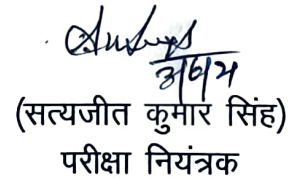 3/6/21
(सत्यजीत कुमार सिंह)
परीक्षा नियंत्रक